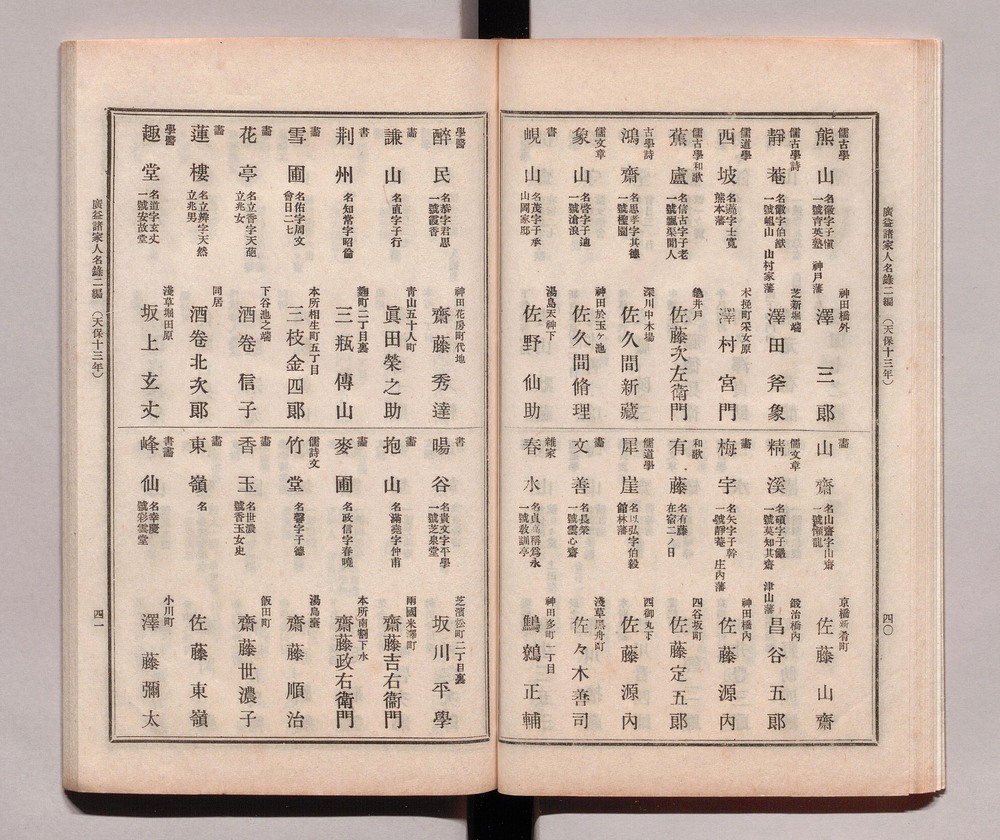 廣益諸家人名錄二編 （天保十三年）
四〇
儒古學 熊山 名徽字子愼 一號育英塾 神戸藩 神田橋外 澤三郎
儒古學詩 靜菴 名徽字伯猷 一號崐山 山村家藩 芝新堀端 澤田斧象
儒道學 西坡 字士寬 熊本藩 木挽町采女原 澤村宮門
儒古學和歌 蕉盧 名信古字子老 一號飄渠閒人 龜井戸 佐藤次左衞門
古學詩 鴻齋 名思孝字其德 一號橅園 深川中木場 佐久間新藏
儒文章 象山 名啓字子迪 一號滄浪 神田於玉ヶ池 佐久間脩理
書 峴山 名茂字子承 山岡家邸 湯島天神下 佐野仙助
畵 山齋 名山齋字山齋 一號懶龍 京橋新肴町 佐藤山齋
儒文章 精溪 名碩字子嚴 一號莫知其齋 津山藩 鍛冶橋內 昌谷五郞
畵 梅宇 名矢字子幹 一號靜菴 庄內藩 神田橋內 佐藤源內
和歌 有藤 名有藤 在宿二ノ日 四谷坂町 佐藤定五郞
儒道學 犀崖 名以弘字伯毅 館林藩 西御丸下 佐藤源內
畵 文善 名長榮 一號雲心齋 淺草黑舟町 佐々木善司
雜家 春水 名貞高稱爲永 一號敎訓亭 神田多町一丁目 鷦鷯正輔
學醫 醉民 名泰字君思 一號霞香 神田花房町代地 齋藤秀達
畵 謙山 名直字子行 靑山五十人町 眞田榮之助
書 荆州 名知常字昭倫 麴町二丁目裏 三瓶傳山
畵 雪圃 名佑字周文 會日二七 本所相生町五丁目 三枝金四郞
畵 花亭 名立香字天葩 立兆女 下谷池之端 酒卷信子
畵 蓮樓 名立辨字天然 立兆男 同居 酒卷北次郞
學醫 趣堂 名道字玄丈 一號安故堂 淺草堀田原 坂上玄丈
書 暘谷 名貴文字平學 一號芝泉堂 芝濱松町二丁目裏 坂川平學
畵 抱山 名滿堯字仲甫 兩國米澤町 齋藤吉右衞門
畵 麥圃 名政信字春曉 本所南割下水 齋藤政右衞門
儒詩文 竹堂 名馨字子德 湯島臺 齋藤順治
畵 香玉 名世濃 號香玉女史 飯田町 齋藤世濃子
畵 東嶺 名 佐藤東嶺
書畵 峰仙 名幸慶 號彩雲堂 小川町 澤藤彌太
廣益諸家人名錄二編 （天保十三年）
四一